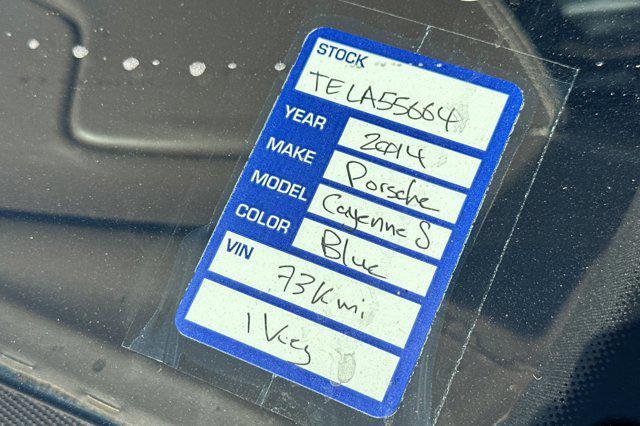 STOCK
TELA55664
YEAR 2014
MAKE Porsche
MODEL Cayenne S
COLOR Blue
VIN 73K mi
1 Key